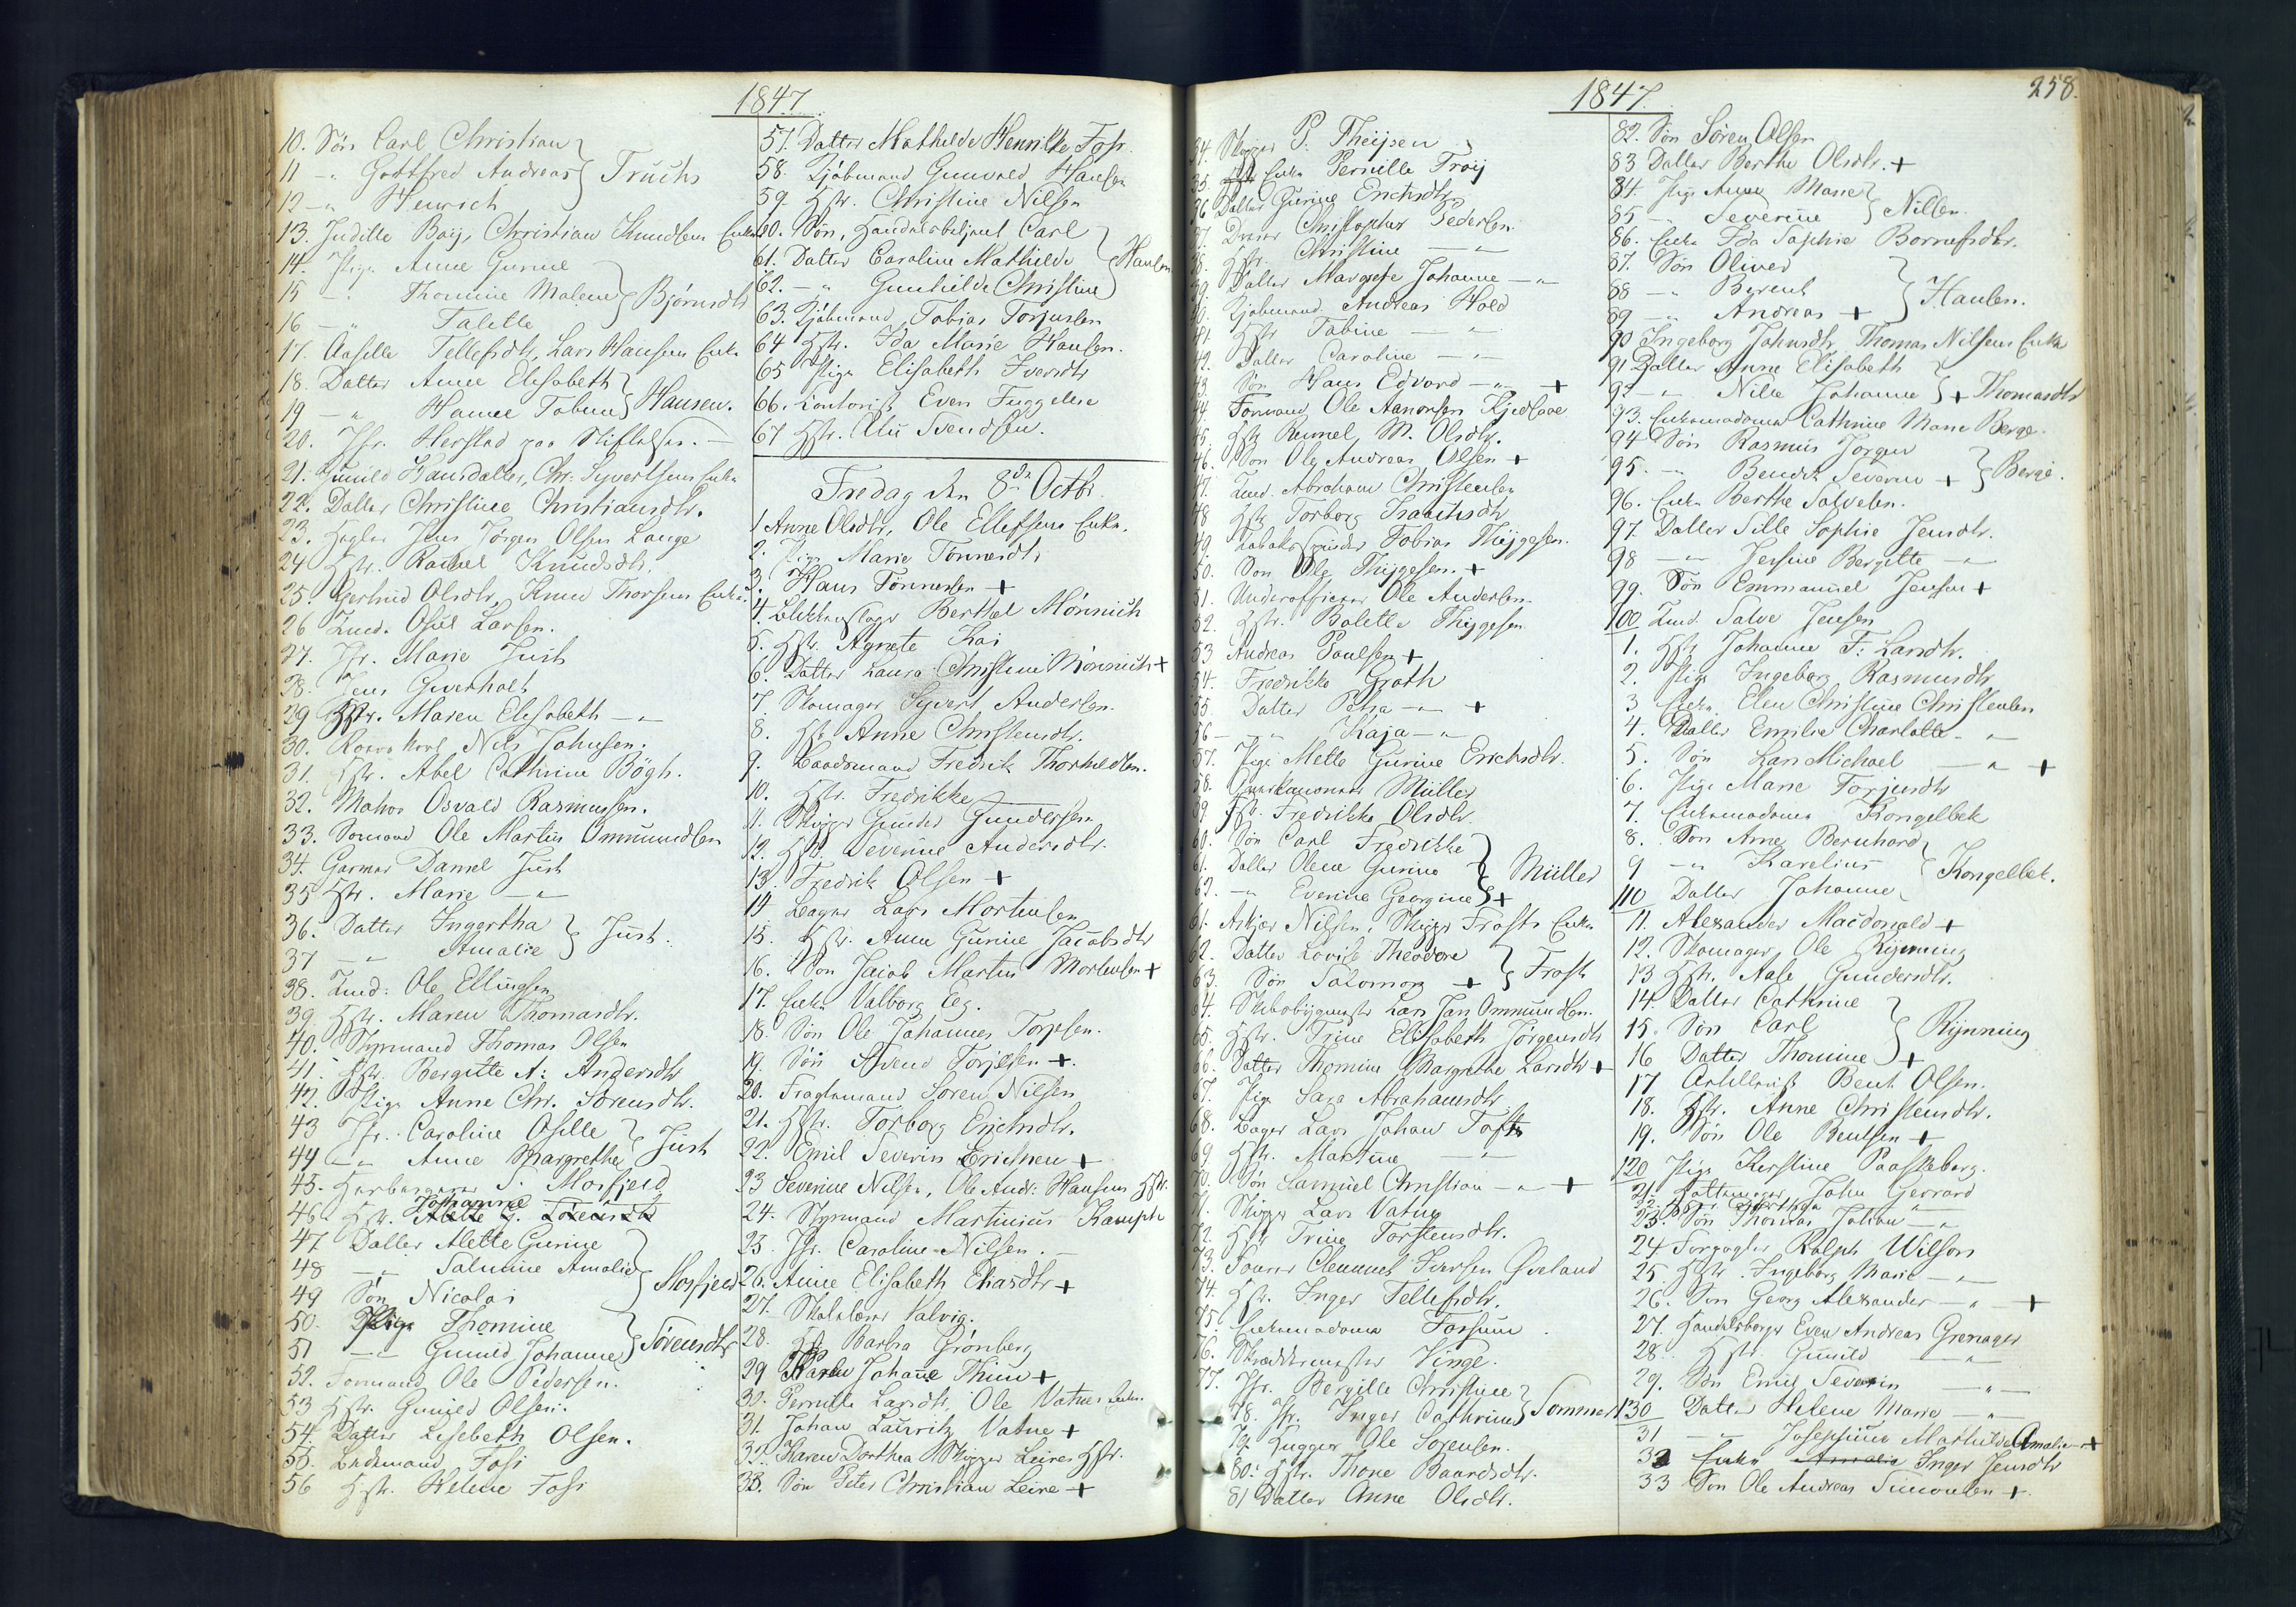 1847
10. Søn Carl Christian
11 -"- Gottfred Andreas } Fruchs
12 -"- Henrich
13. Juditte Boij, Christian Knudsens Enke
14. Pige Anne Gurine
15 -"- Thomine Malene } Bjørnsdtr
16 -"- Talette
17. Aaselle Tellefsdtr, Lars Hansens Enke
18. Datter Anne Elisabeth
19 -"- Hanne Tobine } Hansen.
20. Jfr. Herstad paa Stiftelsen. -
21. Gunild Hansdatter, Chr. Syvertsens Enke
22. Datter Christine Christiansdtr.
23. Jens Jørgen Olsen Lange
24 Hstr. Rachel Knudsdtr.
25. Gertrud Olsdtr, Knud Thorsens Enke
26 Tmd. Osul Larsen.
27. Jfr. Marie Just
28. Jens Gverholt
29 Hstr. Maren Elisabeth -"-
30. Nils Johnsen.
31. Hstr. Abel Cathrine Bögh.
32. Osvald Rasmussen.
33. Sømand Ole Martin Ommundsen
34. Garver Daniel Just
35 Hstr. Marie -"-
36. Datter Ingertha
37 -"- Amalie } Just.
38. Tmd: Ole Ellingsen
39 Hstr. Maren Thomasdtr.
40. Styrmand Thomas Olsen
41. Hstr. Bergitte A: Andersdtr
42. Pige Anne Chr. Sörensdtr.
43 Jfr. Caroline Oselle
44 -"- Anne Margrethe } Just
45. Herbergerer S. Mosfjeld
46. Hstr. Johanne Alette G. Sörensdtr
47 Datter Alette Gurine
48 -"- Salmine Amalie
49 Søn Nicolai } Mosfjeld
50. Pige Thomine
51 -"- Gunild Johanne } Sörensdtr
52. Formand Ole Pedersen.
53 Hstr. Gunild Olsen.
54. Datter Lisebeth Olsen.
55. Foss
56 Hstr. Helene Foss
57. Datter Mathilde Henrikke Foss.
58. Kjøbmand Gunvald Hansen
59. Hstr. Christine Nilsen
60. Søn, Handelsbetjent Carl
61. Datter Caroline Mathilde } Hansen
62. -"- Gunhilde Christine
63. Kjøbmand Tobias Torjussen
64 Hstr. Ida Marie Hansen.
65 Pige Elisabeth Iversdtr
66. Kontorist Even Fuggelie
67 Hstr. Svendsen.
Fredag den 8de Octbr.
1 Anne Olsdtr, Ole Ellefsens Enke.
2. Pige Marie Tönnesdtr
3. Hans Tönnesen +
4. Blikkenslager Berthel Mönnich
5. Hstr. Agnete Kai
6. Datter Laura Christine Mönnich +
7. Skomager Syvert Andersen.
8. Hstr. Anne Christensdtr.
9. Baadsmand Fredrik Thorkildsen.
10. Hstr. Fredrikke
11. Skipper Gunder Gundersen
12. Hstr. Severine Andersdtr.
13. Fredrik Olsen +
14 Bager Lars Mortensen
15. Hstr. Anne Gurine Jacobsdtr
16. Søn Jacob Martin Mortensen +
17. Enke Valborg Eeg.
18. Søn Ole Johannes Torjesen.
19. Søn Svend Torjesen +.
20. Fragtemand Sören Nilsen
21. Hstr. Torborg Erichsdtr.
22. Emil Severin Erichsen +
23 Severine Nilsen, Ole Andr: Hansens Hstr.
24. Styrmand Martinius Kampe
25. Jfr. Caroline Nilsen. -
26. Anne Elisabeth Chasdtr +
27. Skolelærer Salvig.
28. Hstr Barbra Grönberg
29 Karen Johanne Thun +
30. Pernille Larsdtr, Ole Vatnes Enke.
31. Johan Lauritz Vatne +
32. Karen Dorthea Skipper Leires Hstr.
33. Søn Peter Christian Leire +
1847.
258.
34. Skipper P. Theijsen
35. Enke Pernille Froij
36 Datter Gurine Erichsdtr
37. Dreier Christopher Pedersen.
38. Hstr. Christine -"-
39. Datter Margrete Johanne -"-
40. Kjøbmand Andreas Hold
41. Hstr Tabine -"-
42. Datter Caroline -"-
43. Søn Hans Edvard -"- +
44 Formand Ole Aanonsen Kjedlaae
45. Hstr Rennel M. Olsdtr.
46. Søn Ole Andreas Olsen +
47. Tmd. Abraham Christensen
48 Hstr Torborg Isachsdtr
49 Tobakspinder Tobias Thijgesen.
50. Søn Ole Thijgesen. +
51. Underofficer Ole Andersen.
52. Hstr. Bolette Thijgesen
53 Andreas Poulsen +
54. Fredrikke Groth
55 Datter Petra -"- +
56 -"- Kaja -"-
57. Pige Mette Gurine Erichsdtr.
58. Müller
59. Hstr. Fredrikke Olsdtr.
60. Søn Carl Fredrikke
61. Datter Olene Gurine } Müller
62. -"- Evenine Georgine +
61. Askjer Nilsen, Skipper Frosts Enke
62. Datter Lovise Theodore
63. Søn Salomon + } Frost
64. Skibsbygmester Lars Jan Ommundsen.
65. Hstr. Trine Elisabeth Jörgensdtr
66. Datter Thomine Margrethe Larsdtr +
67. Pige Sara Abrahamsdtr
68. Bager Lars Johan Toft
69 Hstr. Martine -"-
70. Søn Samuel Christian -"- +
71. Skipper Lars Vatne
72. Hstr Trine Torstensdtr.
73. Clemmet Iversen Øveland
74. Hstr. Inger Tellefsdtr.
75 Enkemadame Forsum.
76. Skræddermester Vinge.
77. Jfr. Bergitte Christine
78. Jfr. Inger Cathrine } Sommer
79. Hugger Ole Sorensen.
80. Hstr. Thone Baardsdtr.
81 Datter Anne Olsdtr.
82. Søn Sören Olsen
83 Datter Berthe Olsdtr. +
84. Pige Anne Marie
85 -"- Severine } Nilsen.
86. Enke Ida Sophie Borresdtr.
87. Søn Oliver
88 -"- Berent } Hansen.
89 -"- Andreas +
90 Ingeborg Johnsdtr, Thomas Nilsens Enke
91 Datter Anne Elisabeth
92 -"- Nille Johanne } + Thomasdtr
93. Enkemadame Cathrine Marie Berge.
94 Søn Rasmus Jorgen
95. -"- Bendik Severin + } Berge.
96. Enke Berthe Salvesen.
97. Datter Sille Sophie Jensdtr.
98 -"- Jensine Bergitte -"-
99. Søn Emmanuel Jensen +
100 Tmd. Salve Jensen
1. Hstr Johanne T: Larsdtr.
2. Pige Ingeborg Rasmusdtr
3 Enke Elen Christine Christensen
4. Datter Emilie Charlotte -"-
5. Søn Lars Michael -"- +
6. Pige Marie Torjusdtr
7. Enkemadame Kongelbek
8. Søn Arne Bernhard
9 -"- Karelius } Kongelbek.
110 Datter Johanne
11. Alexander Macdonald +
12. Skomager Ole Rijnning
13 Hstr. Aase Gundersdtr.
14. Datter Cathrine
15. Søn Carl } Rijnning
16 Datter Thomine +
17 Artillerist Bent Olsen.
18. Hstr. Anne Christensdtr.
19. Søn Ole Bentsen +
120 Pige Kirstine Paaskeborg.
21. Hattemager John Gerrard
22. Hstr. Dorthea -"-
23. Søn Thomas Julian -"-
24 Forgylder Ralph Wilson
25. Hstr. Ingeborg Marie -"-
26. Søn Georg Alexander -"- +
27. Handelsborger Even Andreas Grenager
28. Hstr. Gunild -"-
29. Søn Emil Severin -"-
130 Datter Helene Marie -"-
31 -"- Josephine Mathilde Amalie -"- +
32 Enke Amalie Inger Jensdtr
33 Søn Ole Andreas Simonsen +